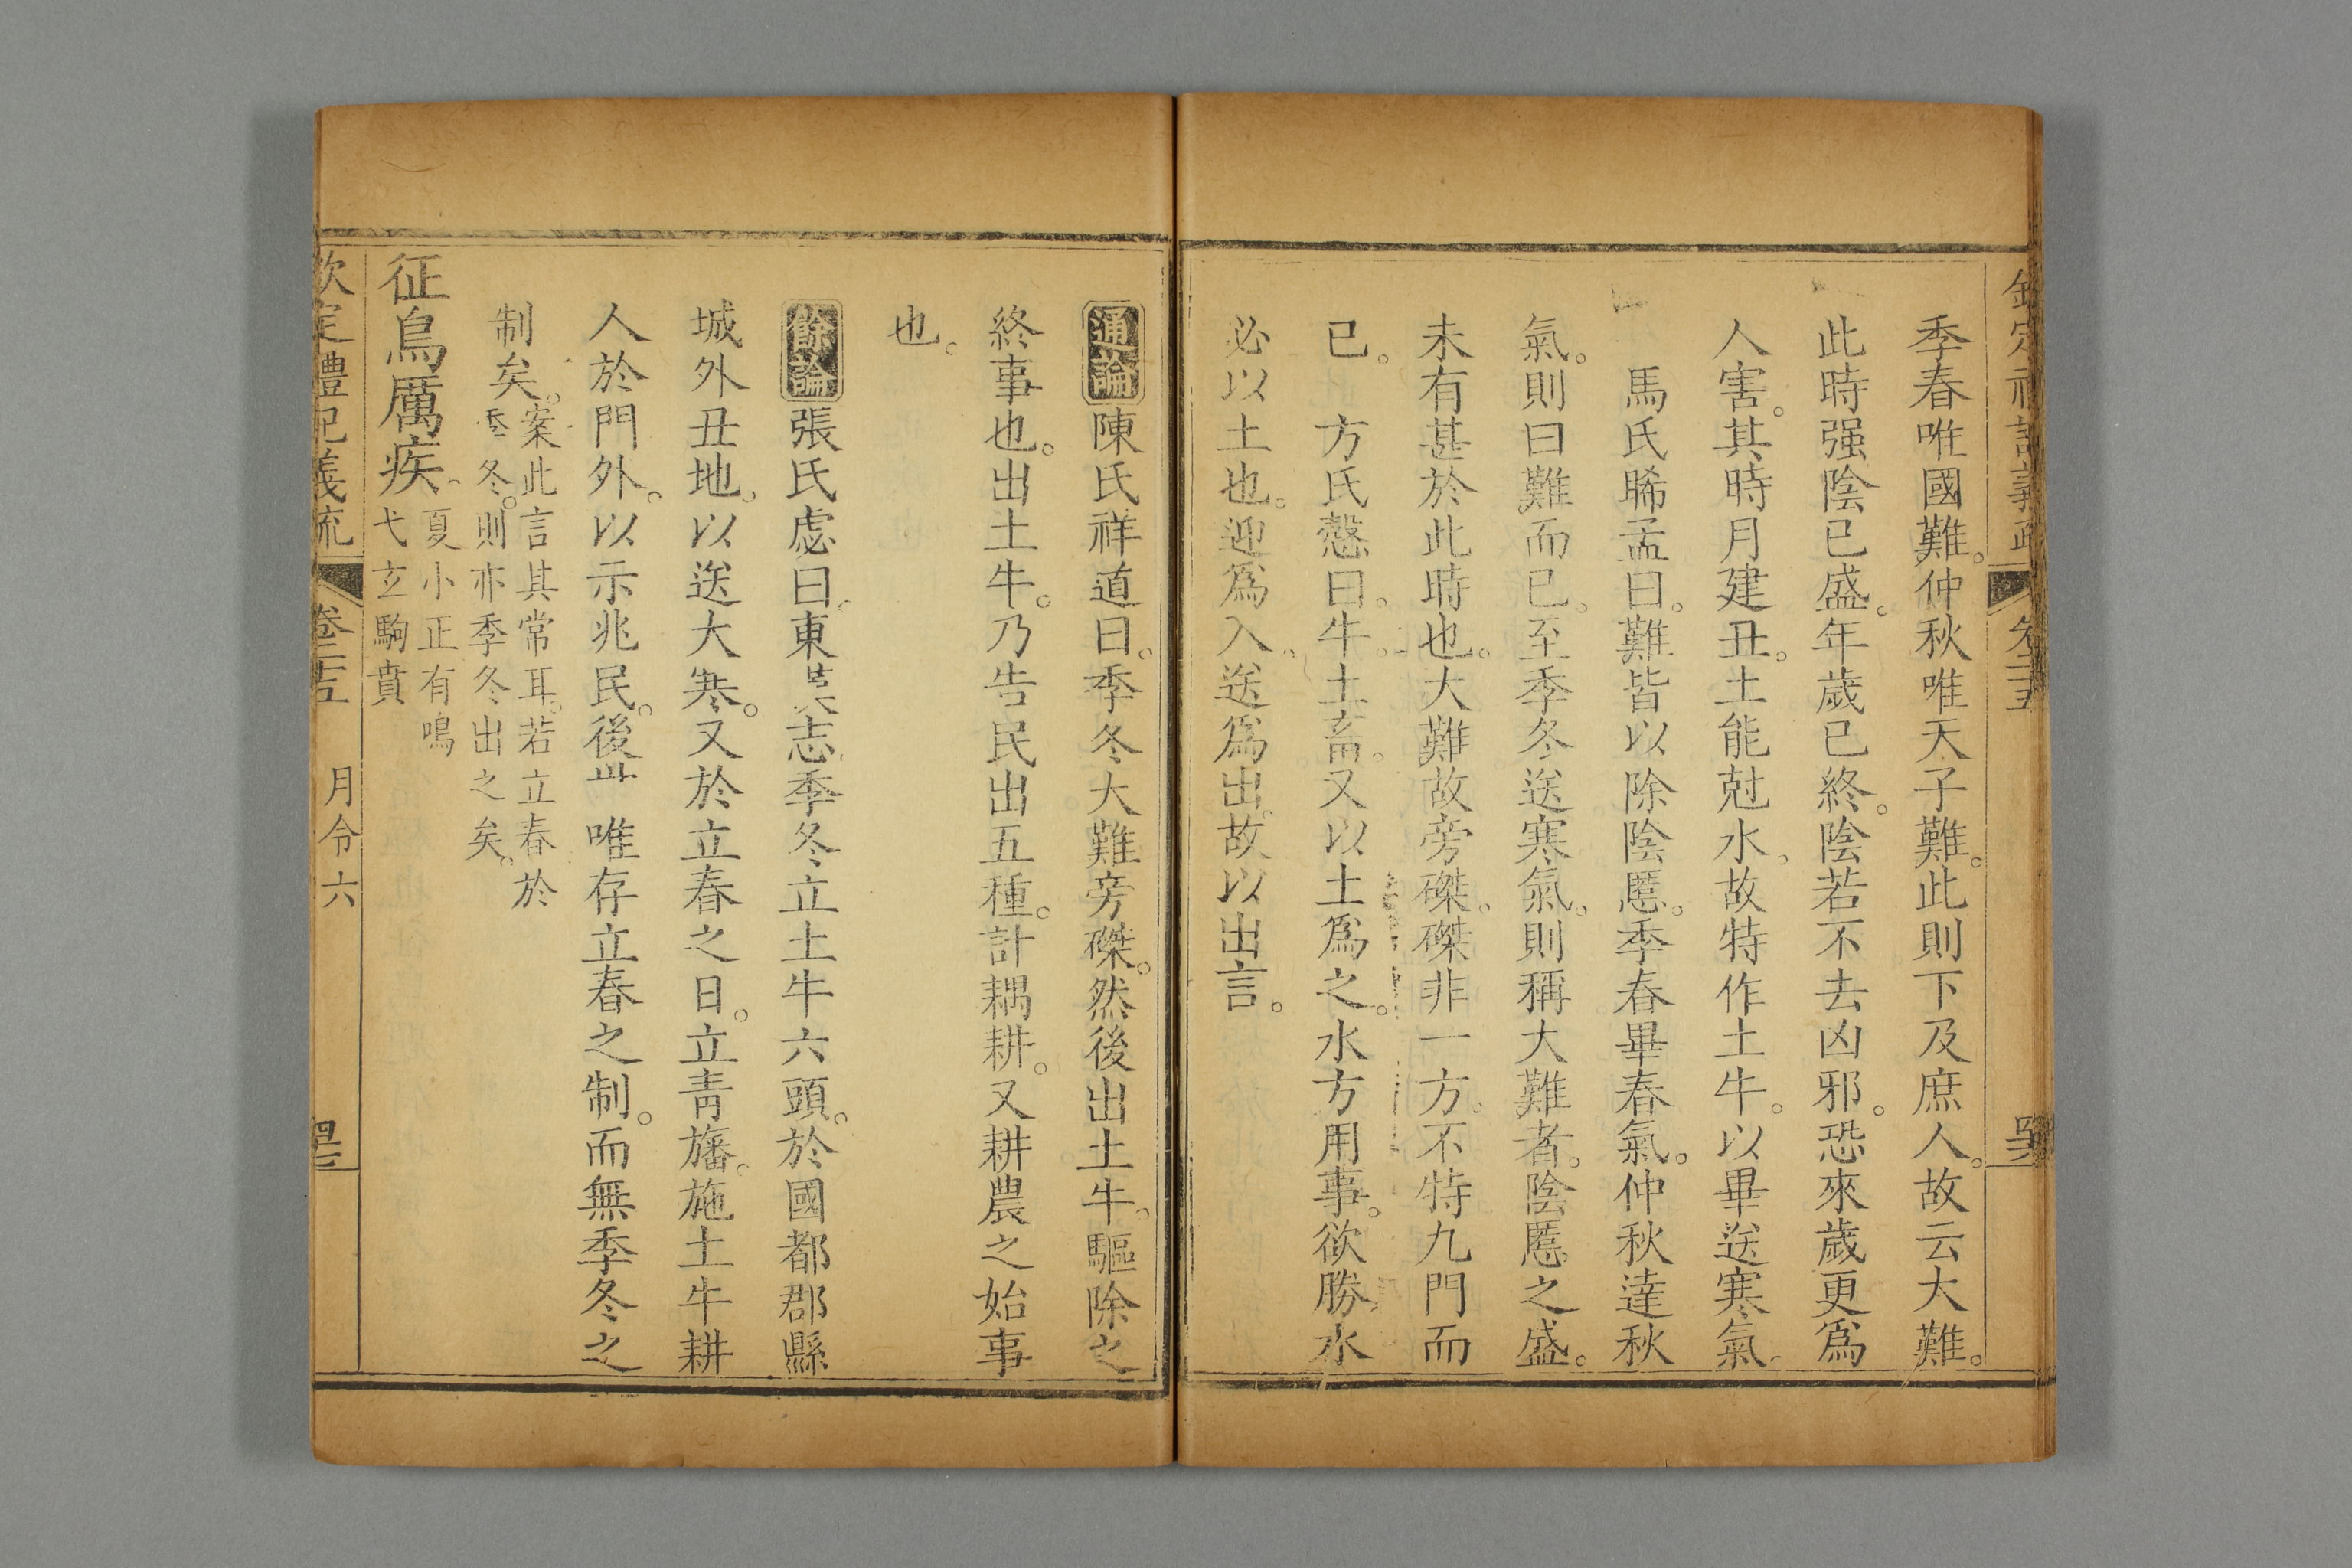 季春唯國難。仲秋唯天子難。此則下及庶人。故云大難。
此時强陰已盛。年歲已終。陰若不去凶邪。恐來歲更爲
人害。其時月建丑。土能尅水。故特作土牛。以畢送寒氣。
馬氏睎孟曰。難皆以除陰慝。季春畢春氣。仲秋達秋
氣。則曰難而已。至季冬送寒氣。則稱大難者。陰慝之盛。
未有甚於此時也。大難故旁磔。磔非一方。不特九門而
已。方氏慤曰。牛。土畜。又以土爲之。水方用事。欲勝水
必以土也。迎爲入。送爲出。故以出言。
通論陳氏祥道曰。季冬大難旁磔。然後出土牛。驅除之
終事也。出土牛。乃告民出五種。計耦耕。又耕農之始事
也。
餘論張氏虙曰。東漢志季冬立土牛六頭。於國都郡縣
城外丑地。以送大寒。又於立春之日。立靑旛。施土牛耕
人於門外。以示兆民。後世唯存立春之制。而無季冬之
制矣。
案此言其常耳。若立春於
季冬。則亦季冬出之矣。
征鳥厲疾。
夏小正有鳴
弋玄駒賁
欽定禮記義疏 卷二十五 月令六